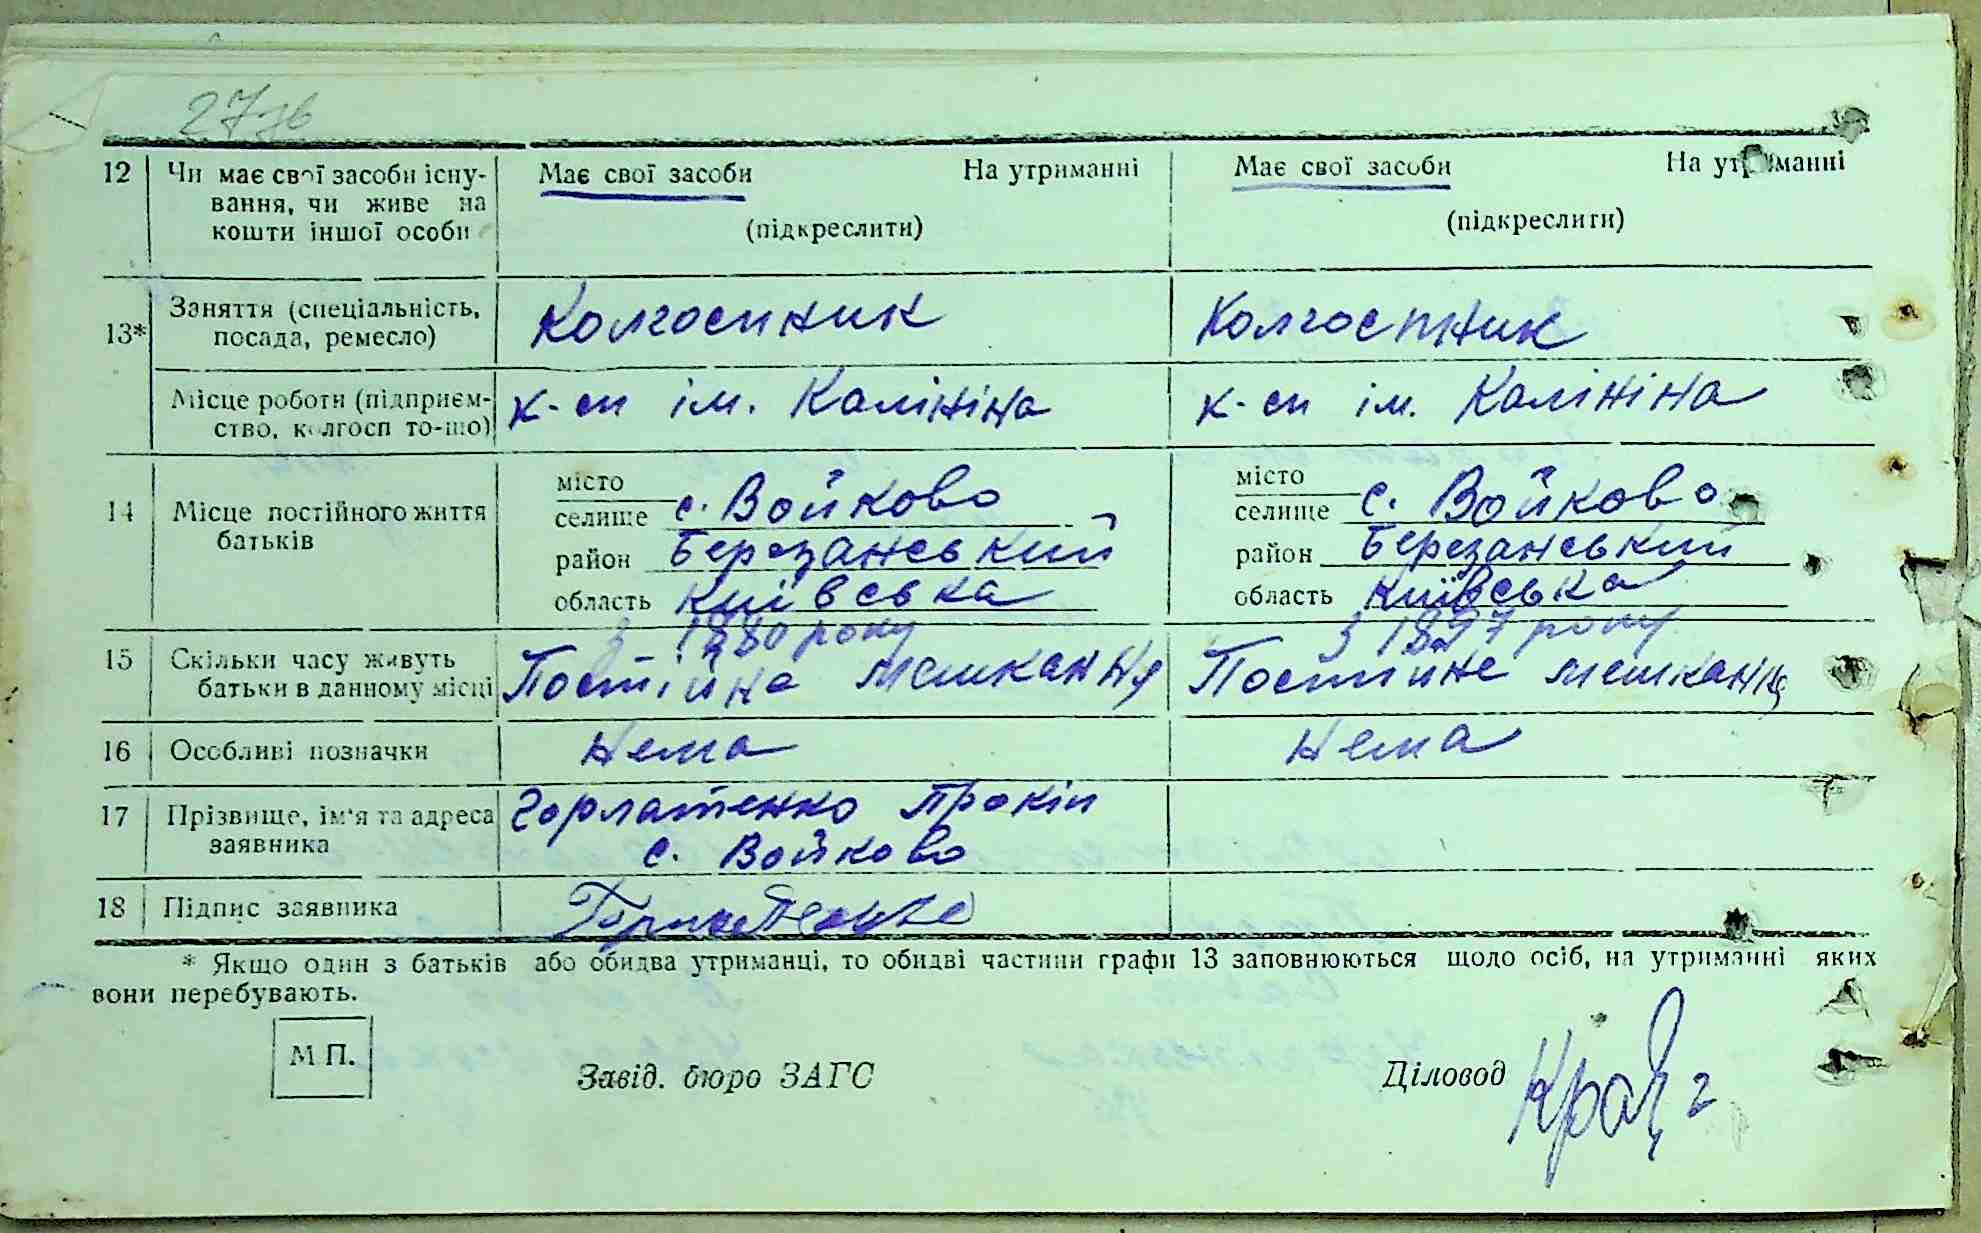 27зв
12 Чи має свої засоби існу- Має свої засоби На утриманні Має свої засоби На утриманні
вання, чи живе на
кошти іншої особи (підкреслити) (підкреслити)
Заняття (спеціальність, Колгоспник Колгоспник
13* посада, ремесло)
Місце роботи (підприєм- к-сп ім. Калініна к-сп ім. Калініна
ство, колгосп то-що)
місто місто
14 Місце постійного життя селище с. Войково селище с. Войково
батьків район Березанський район Березанський
область Київська область Київська
з 1880 року з 1897 року
15 Скільки часу живуть Постійна мешкання Постійне мешканця
батьки в данному місці
16 Особливі позначки Нема Нема
17 Прізвище, ім'я та адреса Горлатенко Прокіп
заявника с. Войково
18 Підпис заявника
* Якщо один з батьків або обидва утриманці, то обидві частини графи 13 заповнюються щодо осіб, на утриманні яких
вони перебувають.
М П.
Завід. бюро ЗАГС Діловод